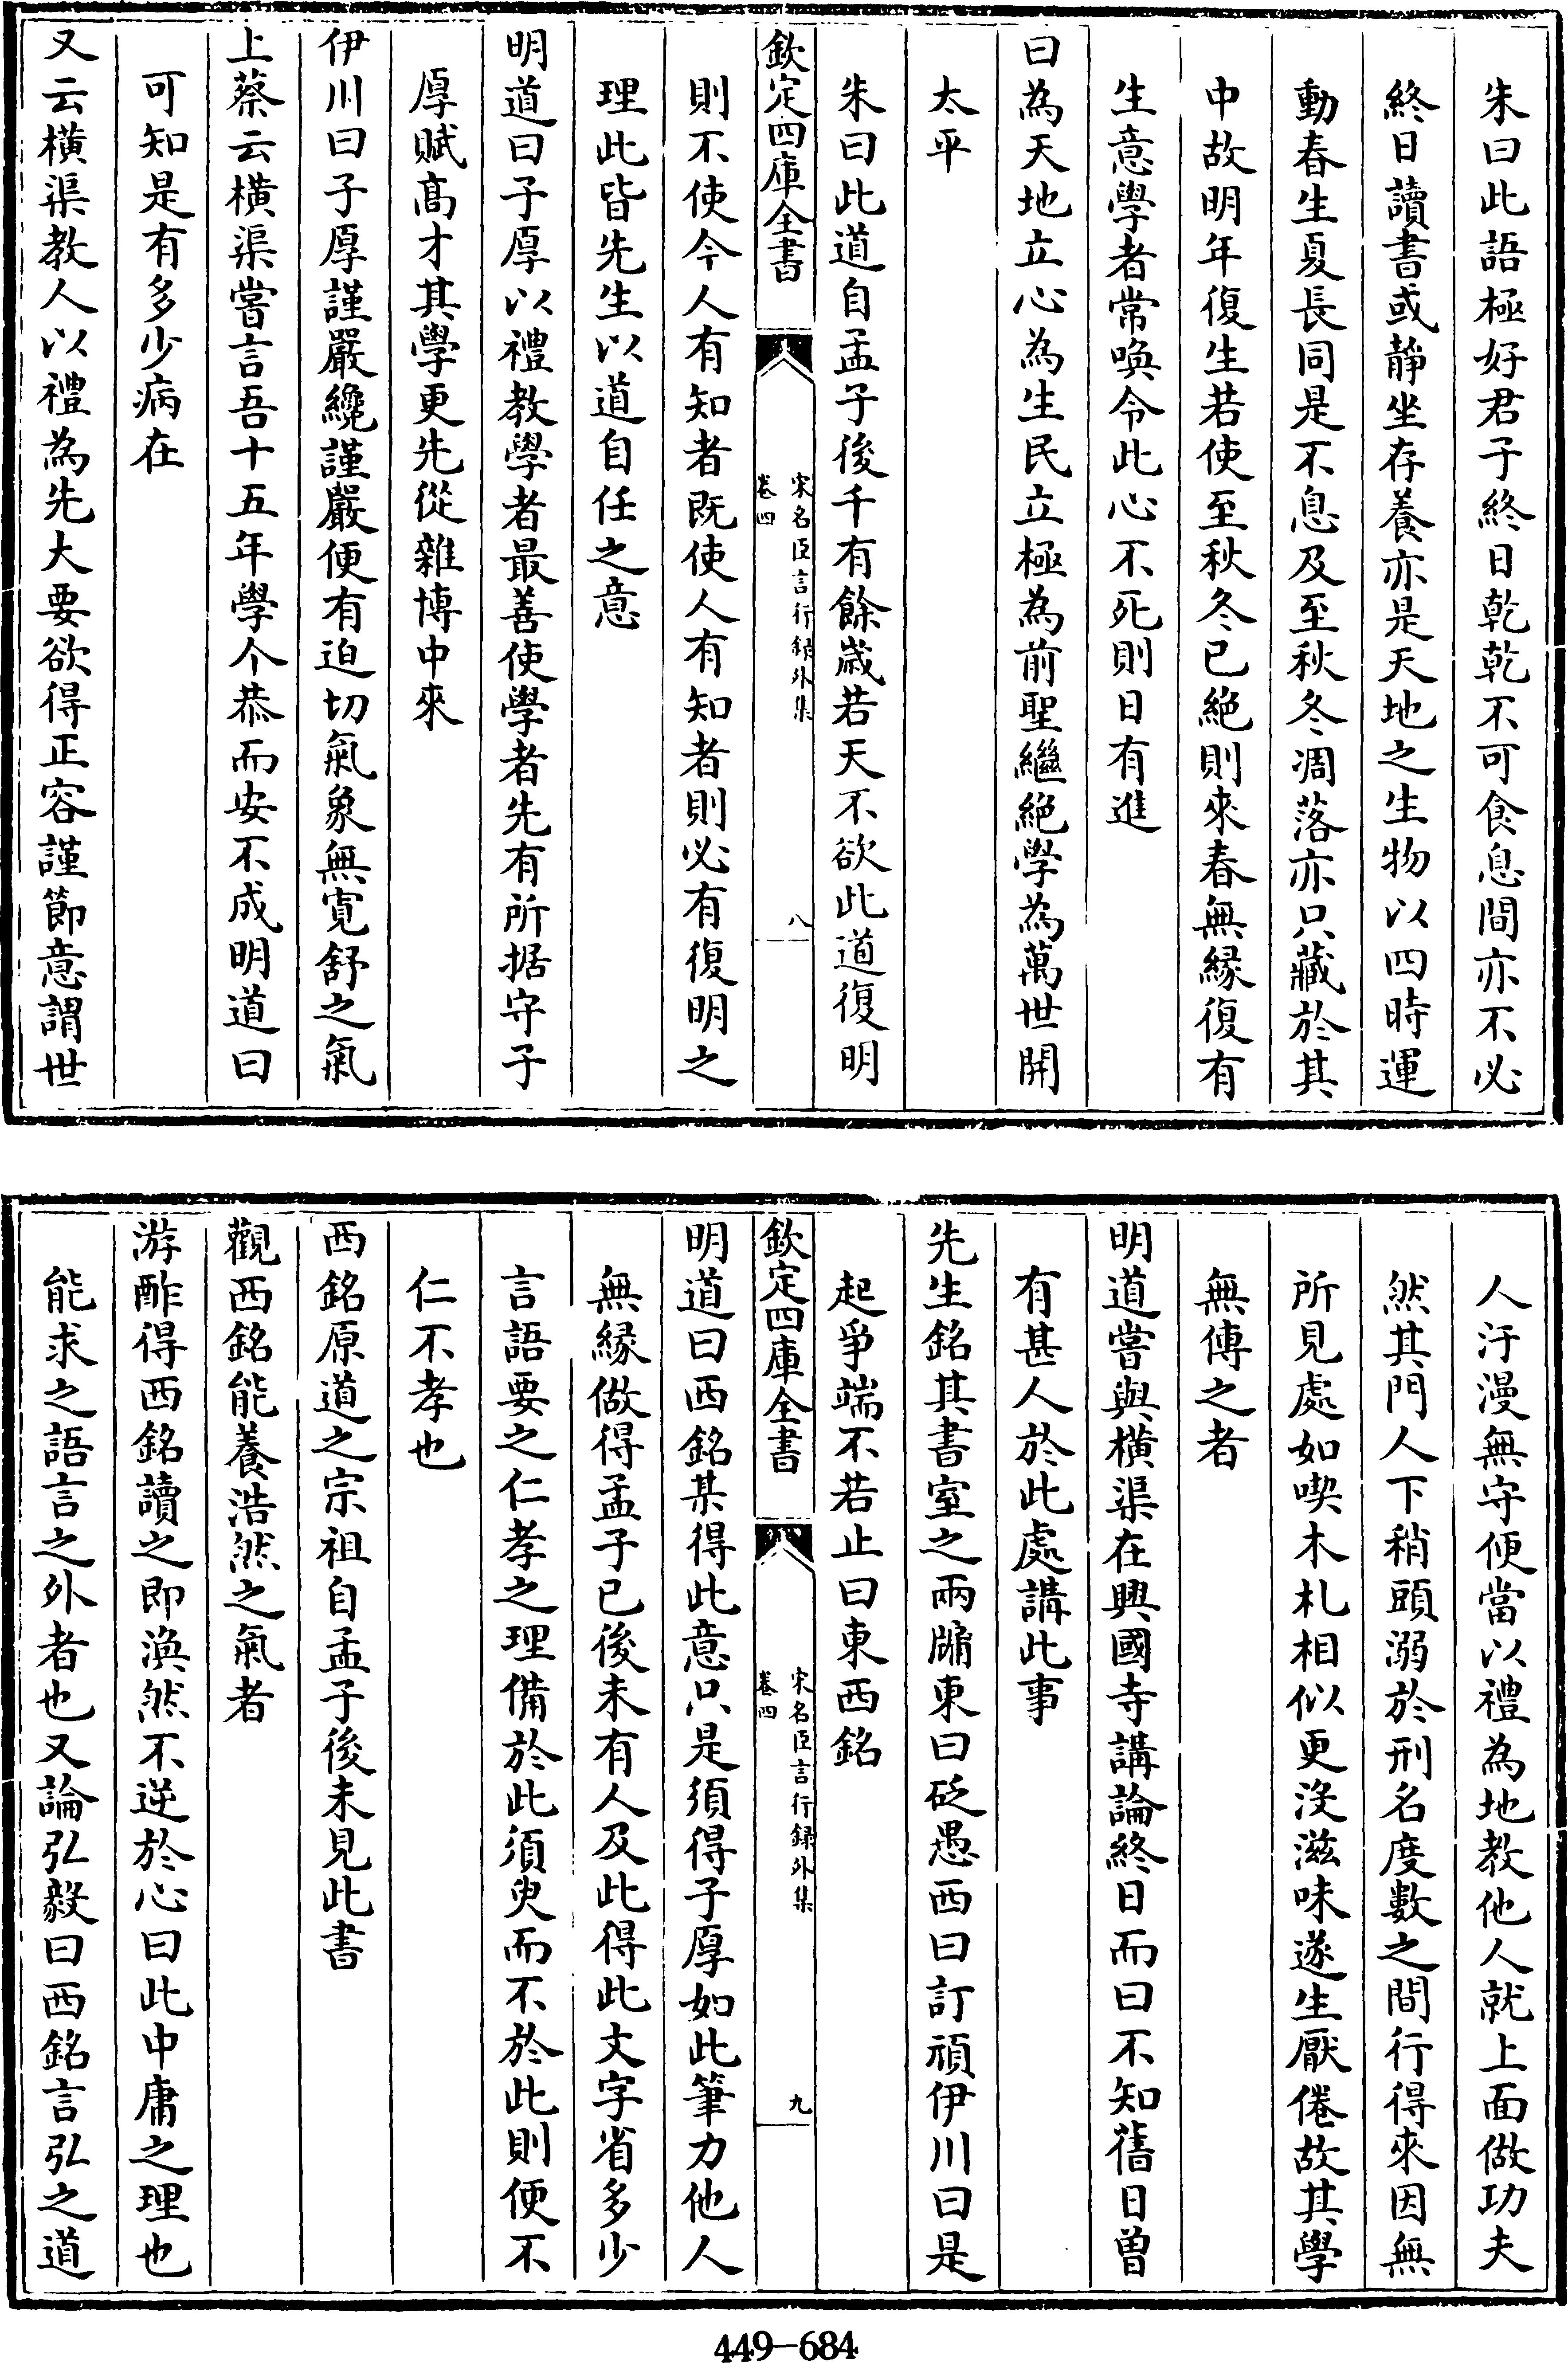 朱曰此語極好君子終日乾乾不可食息間亦不必
終日讀書或靜坐存養亦是天地之生物以四時運
動春生夏長同是不息及至秋冬凋落亦只藏於其
中故明年復生若使至秋冬已絶則來春無縁復有
生意學者常喚令此心不死則日有進
曰為天地立心為生民立極為前聖繼絶學為萬世開
太平
朱曰此道自孟子後千有餘歲若天不欲此道復明
欽定四庫全書
宋名臣言行録外集
卷四
八
則不使今人有知者既使人有知者則必有復明之
理此皆先生以道自任之意
明道曰子厚以禮教學者最善使學者先有所据守子
厚賦高才其學更先從雜博中來
伊川曰子厚謹嚴纔謹嚴便有迫切氣象無寛舒之氣
上蔡云横渠嘗言吾十五年學个恭而安不成明道曰
可知是有多少病在
又云横渠教人以禮為先大要欲得正容謹節意謂世
人汗漫無守便當以禮為地教他人就上面做功夫
然其門人下稍頭溺於刑名度數之間行得來因無
所見處如喫木札相似更没滋味遂生厭倦故其學
無傳之者
明道嘗與横渠在興國寺講論終日而曰不知舊日曾
有甚人於此處講此事
先生銘其書室之兩牖東曰砭愚西曰訂頑伊川曰是
起爭端不若止曰東西銘
欽定四庫全書
宋名臣言行録外集
卷四
九
明道曰西銘某得此意只是須得子厚如此筆力他人
無縁做得孟子已後未有人及此得此文字省多少
言語要之仁孝之理備於此須臾而不於此則便不
仁不孝也
西銘原道之宗祖自孟子後未見此書
觀西銘能養浩然之氣者
游酢得西銘讀之即渙然不逆於心曰此中庸之理也
能求之語言之外者也又論弘毅曰西銘言弘之道
449-684